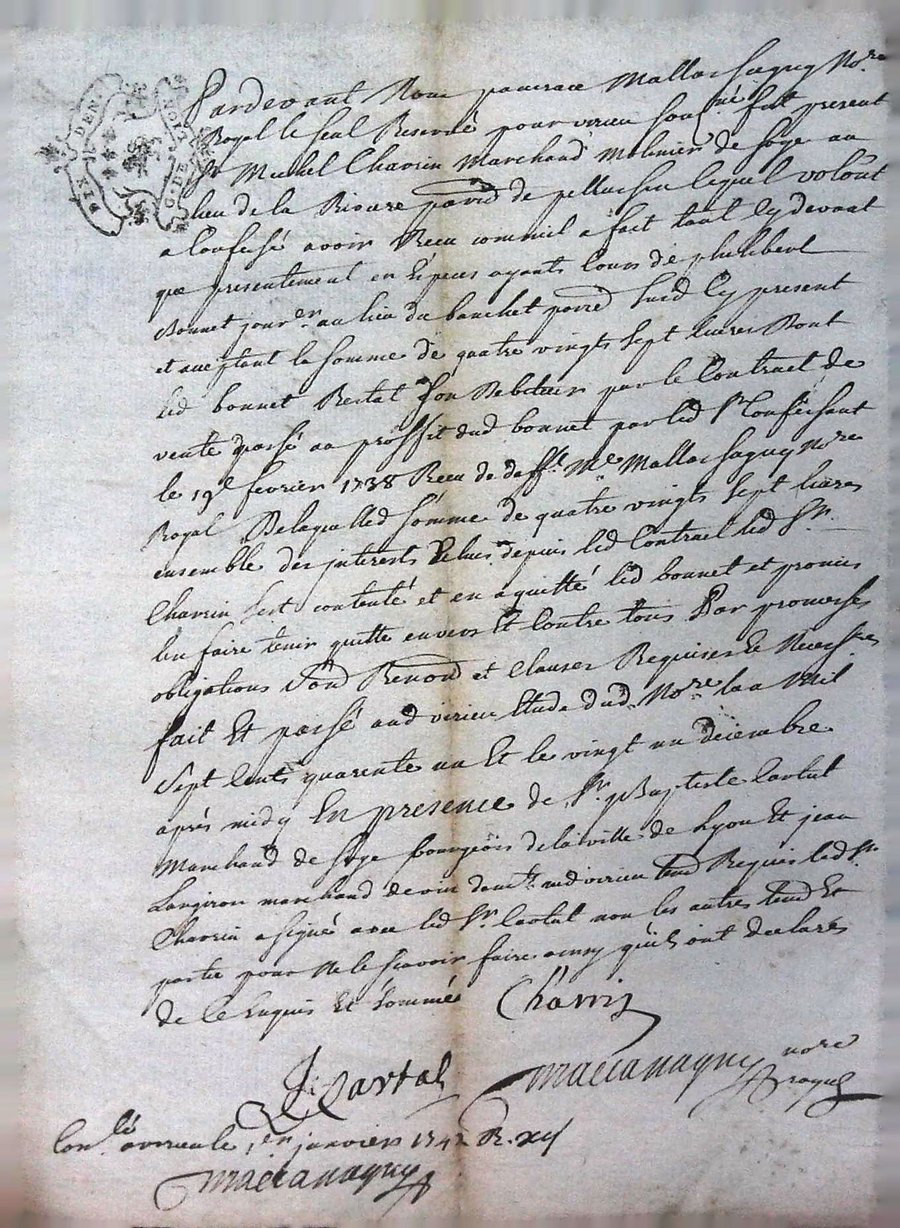 SIX DEN. G. DE LION
Pardevant Nous pancrace Mallassagny No.re
Royal le seal Reservé pour virieu sous.né fut present
Sr Michel Charrin Marchand Molinier de soye au
lieu de la Riviere parr.d de pellussin lequel volont
a Confessé avoir Receu comm'il a fait tant Cy devant
que presentement en Especes ayants Cours de philibert
Bonnet jour.er au lieu du banchet parr.d susd Cy present
et acceptant la somme de quatre vingts sept livres Dont
led bonnet Restat son Debiteur par le Contract de
vente passé au proffit dud bonnet par led Sr Confessant
le 19e fevrier 1738 Receu de deff.t Me Mallassagny No.re
Royal De laquelle somme de quatre vingts sept livres
ensemble des interests depuis led Contract led Sr.
Charrin s'est contenté et en a quitté led bonnet et promis
l'en faire tenir quitte envers Et Contre tous Par promesses
obligations Renond et Clauses Requises Et Necess.res
fait Et passé aud virieu Etude dud No.re l'an Mil
Sept Cents quarente un Et le vingt un decembre
après midy En presence de Sr. Baptiste Cartal
Marchand de soye bourgeois de la ville de Lyon Et jean
marchand de vin aud virieu Requis led Sr
Charrin a signé avec led Sr. Cartal non les autres Et
partie pour ne le scavoir faire ainsy qu'ils ont declarés
de ce Enquis Et sommés Charrin
Cartal
Mallassagny nore
royal
Con.lé a virieu le 1er janvier 1742 R. xij s
Mallassagny